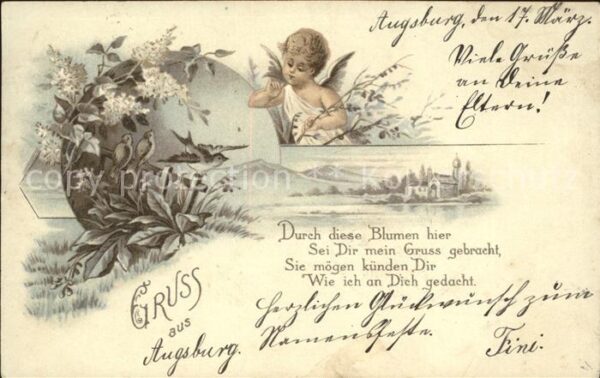 Augsburg, den 17. März.
Viele Grüße
an Deine
Eltern!
Durch diese Blumen hier
Sei Dir mein Gruss gebracht,
Sie mögen künden Dir
Wie ich an Dich gedacht.
GRUSS
aus
Augsburg.
herzlichen Glückwunsch zum
Namensfeste.
Tini.
copy protection